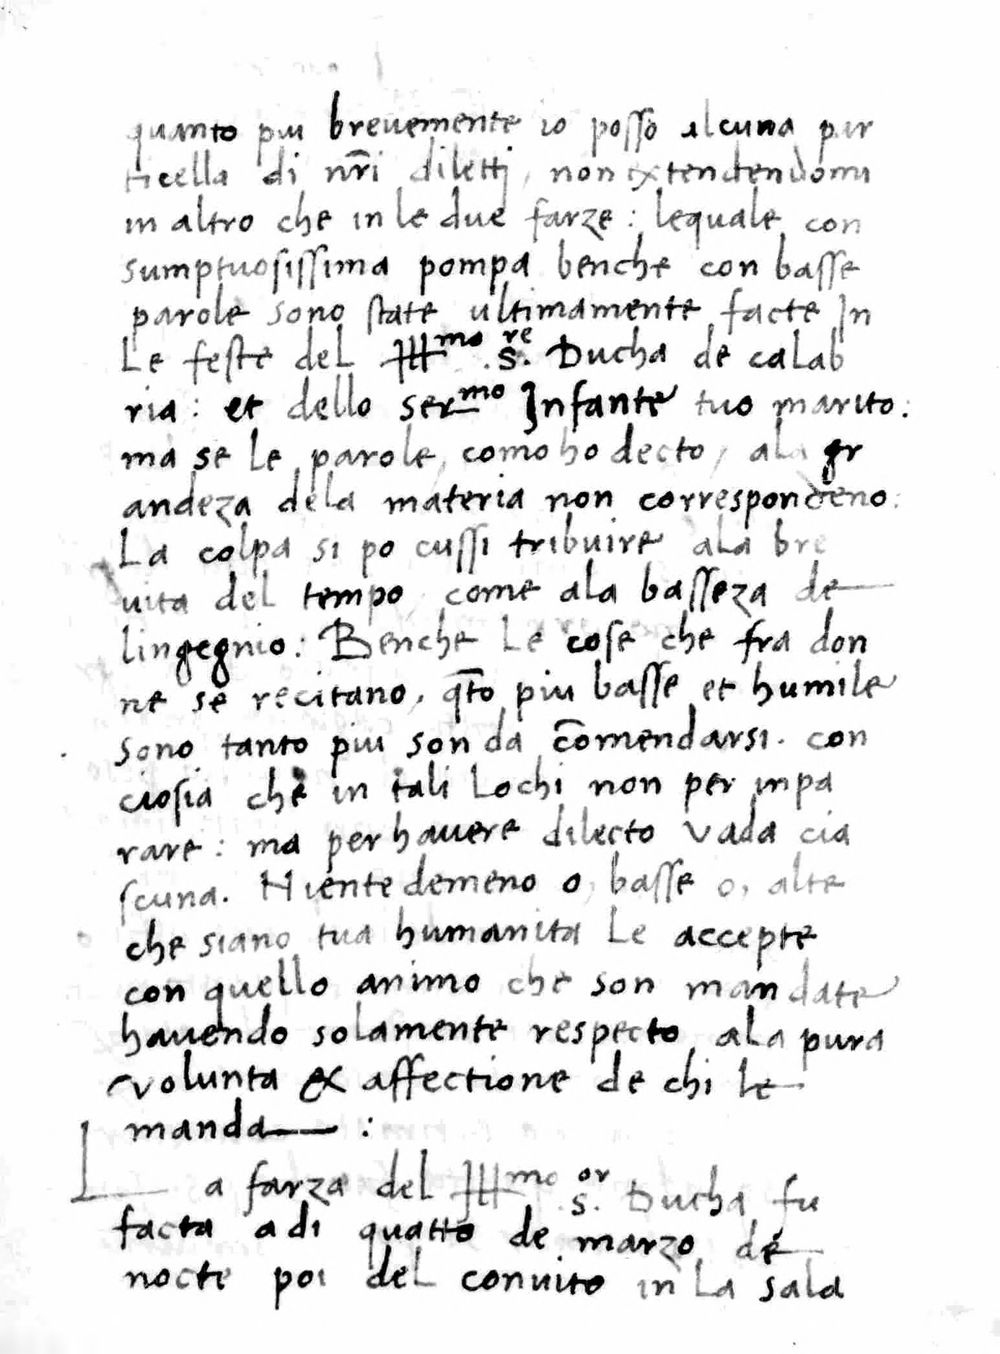 quanto piu breuemente io posso alcuna par
ticella di nr̄i diletti, non extendendomi
in altro che in le due farze: lequale con
sumptuosissima pompa benche con basse
parole sono state ultimamente facte In
Le feste del Illmo S.re Ducha de calab
ria: et dello sermo Infante tuo marito:
ma se le parole, como ho decto, ala gr
andeza dela materia non correspondeno:
La colpa si po cussi tribuire ala bre
uita del tempo come ala basseza de
lingegnio: Benche le cose che fra don
ne se recitano, q̄to piu basse et humile
sono tanto piu son da cōmendarsi. con
ciosia che in tali Lochi non per inpa
rare: ma per hauere dilecto vada cia
scuna. Niente demeno o, basse o, alte
che siano tua humanita Le accepte
con quello animo che son mandate
hauendo solamente respecto ala pura
volunta & affectione de chi le
manda :
La farza del Illmo S.or Ducha fu
facta adi quatto de marzo de
nocte poi del conuito in La sala